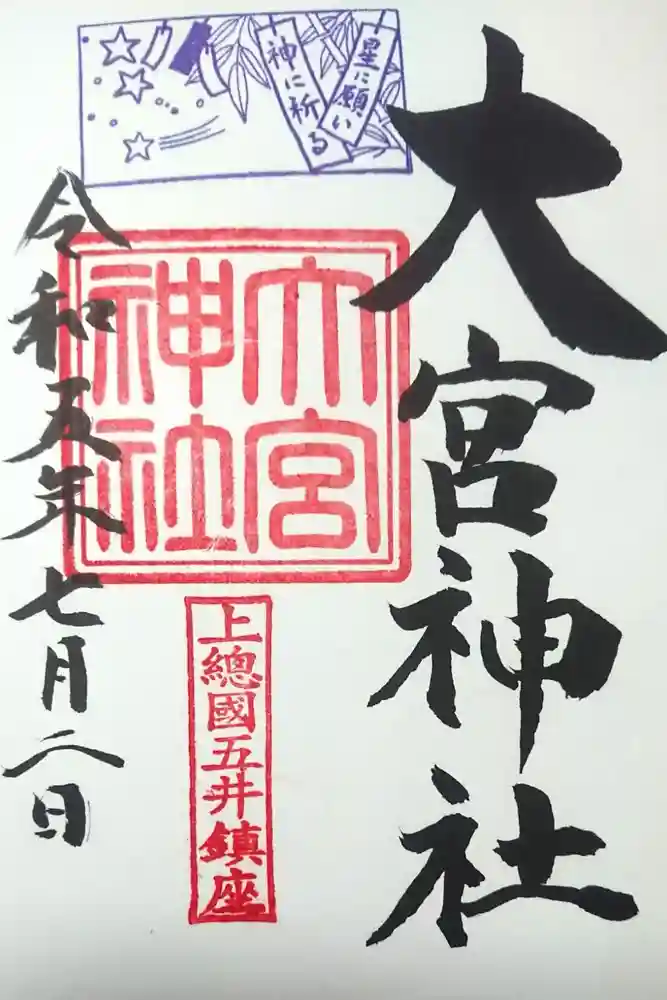 大宮神社
星に願い
神に祈る
大宮
神社
上總國五井鎮座
令和五年七月二日